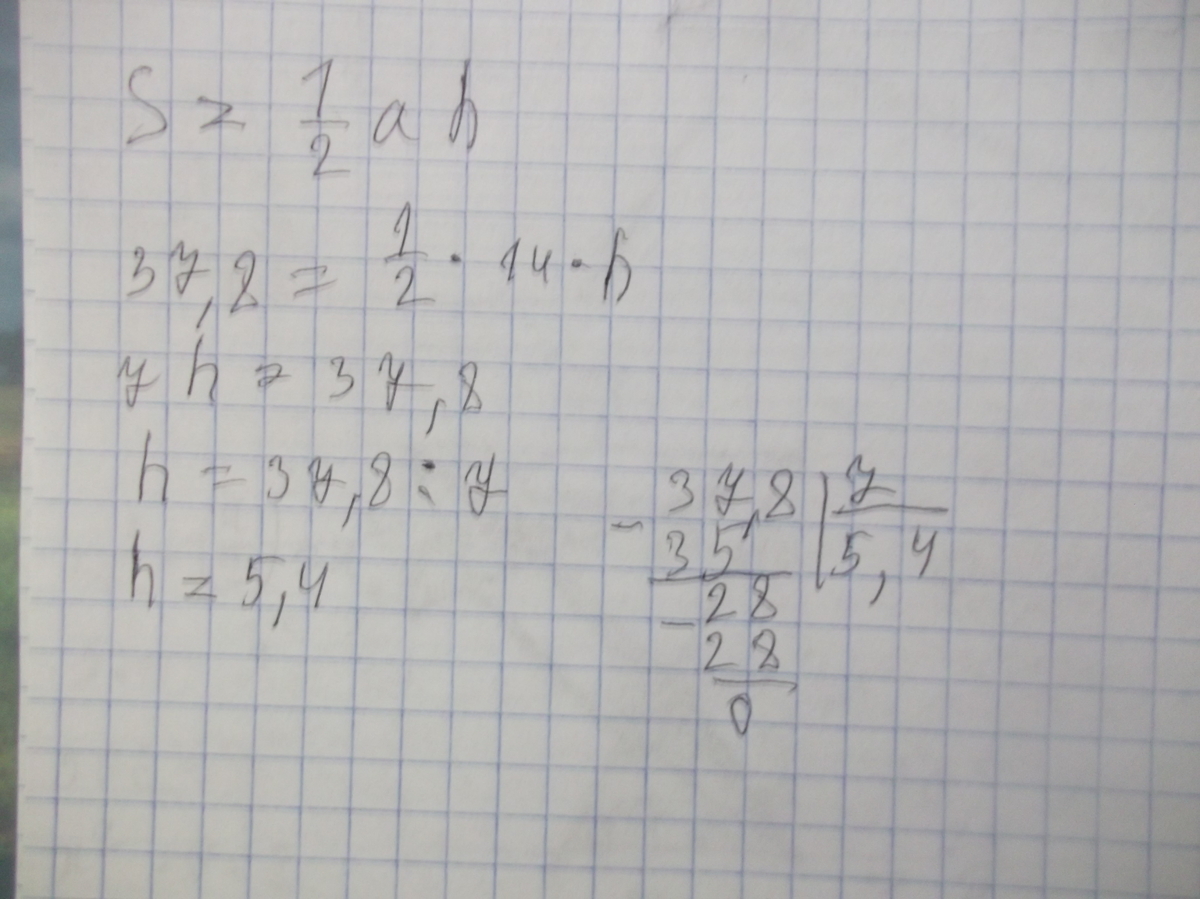 S = 1/2 a h
37,8 = 1/2 · 14 · h
7 h = 37,8
h = 37,8 : 7
h = 5,4
- 37,8 | 7
35 | 5,4
- 28
28
0